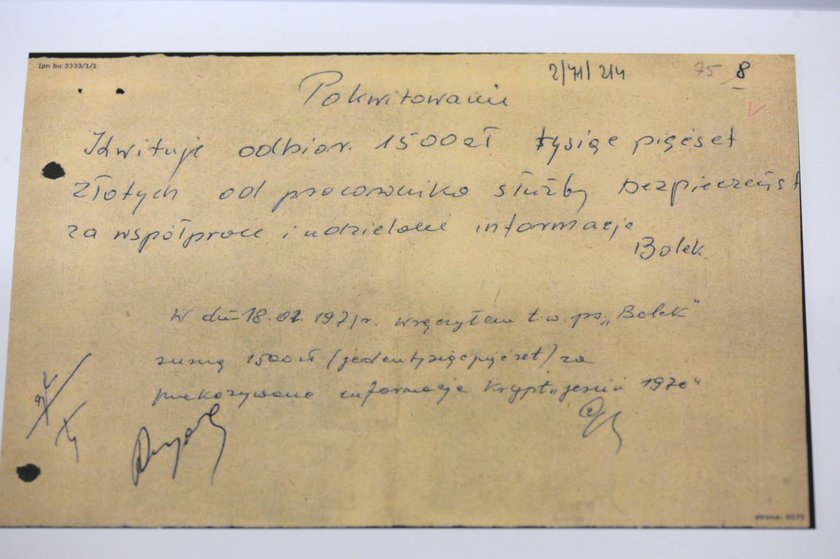 Ipn bu 3333/1/1
2/71/214 75 8
Pokwitowanie
Kwituje odbior. 1500 zł tysiąc pięćset
złotych od pracownika służby bezpieczeńst
za współprace i udzielone informacje
Bolek
W dniu 18.01.1971r. wręczyłem t.w. ps. „Bolek”
sumę 1500 zł (jeden tysiąc pięćset) za
przekazywane informacje krypt. „Jesień 1970”